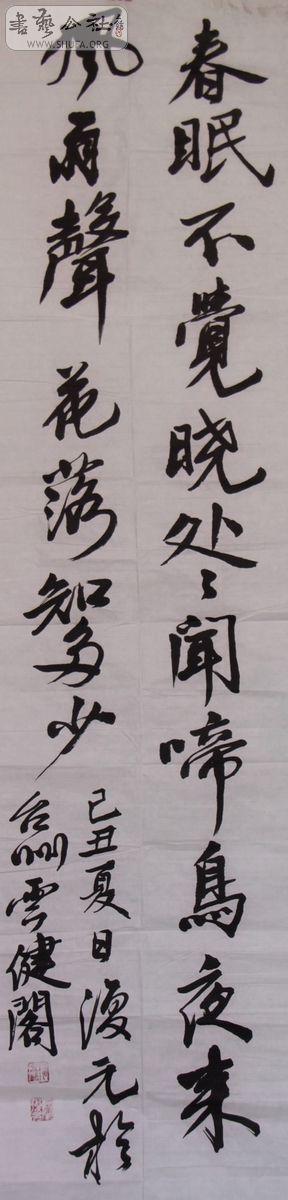 春眠不覺晓处々聞啼鳥夜来
風雨聲花落知多少
己丑夏日復元於
台州雲健閣
書藝公社
WWW.SHUFA.ORG